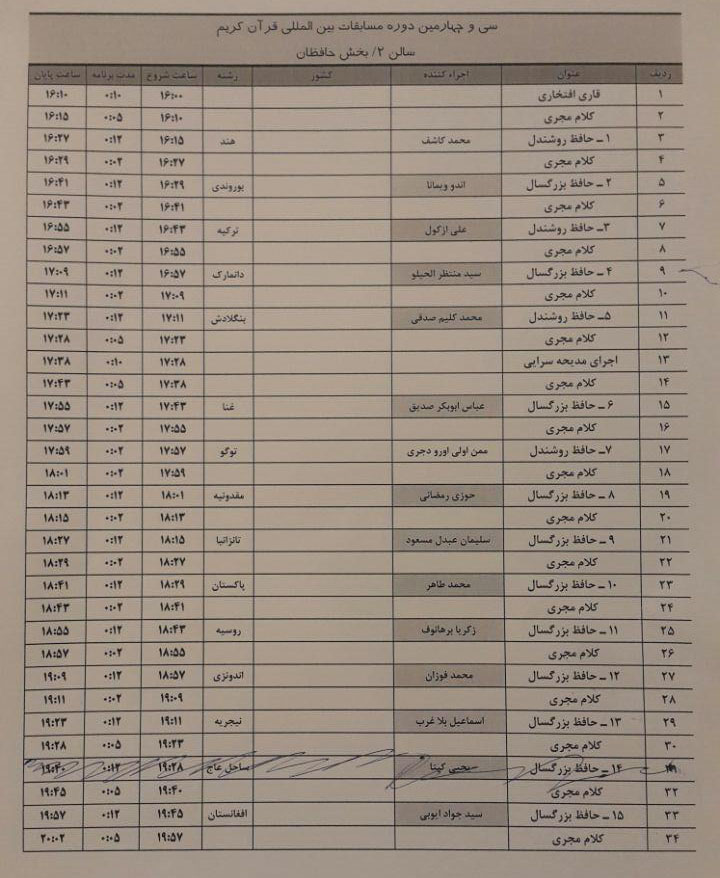 سی و چهارمین دوره مسابقات بین المللی قرآن کریم
سالن ۲/ بخش حافظان
ردیف عنوان اجراء کننده کشور رشته ساعت شروع مدت برنامه ساعت پایان
۱ قاری افتخاری ۱۶:۰۰ ۰:۱۰ ۱۶:۱۰
۲ کلام مجری ۱۶:۱۰ ۰:۰۵ ۱۶:۱۵
۳ ۱ــ حافظ روشندل محمد کاشف هند ۱۶:۱۵ ۰:۱۲ ۱۶:۲۷
۴ کلام مجری ۱۶:۲۷ ۰:۰۲ ۱۶:۲۹
۵ ۲ــ حافظ بزرگسال اندو ویمانا بوروندی ۱۶:۲۹ ۰:۱۲ ۱۶:۴۱
۶ کلام مجری ۱۶:۴۱ ۰:۰۲ ۱۶:۴۳
۷ ۳ــ حافظ روشندل علی ازکول ترکیه ۱۶:۴۳ ۰:۱۲ ۱۶:۵۵
۸ کلام مجری ۱۶:۵۵ ۰:۰۲ ۱۶:۵۷
۹ ۴ــ حافظ بزرگسال سید منتظر الحیلو دانمارک ۱۶:۵۷ ۰:۱۲ ۱۷:۰۹
۱۰ کلام مجری ۱۷:۰۹ ۰:۰۲ ۱۷:۱۱
۱۱ ۵ــ حافظ روشندل محمد کلیم صدقی بنگلادش ۱۷:۱۱ ۰:۱۲ ۱۷:۲۳
۱۲ کلام مجری ۱۷:۲۳ ۰:۰۵ ۱۷:۲۸
۱۳ اجرای مدیحه سرایی ۱۷:۲۸ ۰:۱۰ ۱۷:۳۸
۱۴ کلام مجری ۱۷:۳۸ ۰:۰۵ ۱۷:۴۳
۱۵ ۶ــ حافظ بزرگسال عباس ابوبکر صدیق غنا ۱۷:۴۳ ۰:۱۲ ۱۷:۵۵
۱۶ کلام مجری ۱۷:۵۵ ۰:۰۲ ۱۷:۵۷
۱۷ ۷ــ حافظ روشندل ممن اولی اورو دجری توگو ۱۷:۵۷ ۰:۰۲ ۱۷:۵۹
۱۸ کلام مجری ۱۷:۵۹ ۰:۰۲ ۱۸:۰۱
۱۹ ۸ــ حافظ بزرگسال حوزی رمضانی مقدونیه ۱۸:۰۱ ۰:۱۲ ۱۸:۱۳
۲۰ کلام مجری ۱۸:۱۳ ۰:۰۲ ۱۸:۱۵
۲۱ ۹ــ حافظ بزرگسال سلیمان عبدل مسعود تانزانیا ۱۸:۱۵ ۰:۱۲ ۱۸:۲۷
۲۲ کلام مجری ۱۸:۲۷ ۰:۰۲ ۱۸:۲۹
۲۳ ۱۰ــ حافظ بزرگسال محمد طاهر پاکستان ۱۸:۲۹ ۰:۱۲ ۱۸:۴۱
۲۴ کلام مجری ۱۸:۴۱ ۰:۰۲ ۱۸:۴۳
۲۵ ۱۱ــ حافظ بزرگسال زکریا برهانوف روسیه ۱۸:۴۳ ۰:۱۲ ۱۸:۵۵
۲۶ کلام مجری ۱۸:۵۵ ۰:۰۲ ۱۸:۵۷
۲۷ ۱۲ــ حافظ بزرگسال محمد فوزان اندونزی ۱۸:۵۷ ۰:۱۲ ۱۹:۰۹
۲۸ کلام مجری ۱۹:۰۹ ۰:۰۲ ۱۹:۱۱
۲۹ ۱۳ــ حافظ بزرگسال اسماعیل بلا غرب نیجریه ۱۹:۱۱ ۰:۱۲ ۱۹:۲۳
۳۰ کلام مجری ۱۹:۲۳ ۰:۰۵ ۱۹:۲۸
۱۴ــ حافظ بزرگسال ساحل عاج ۱۹:۲۸ ۰:۱۲ ۱۹:۴۰
۳۲ کلام مجری ۱۹:۴۰ ۰:۰۵ ۱۹:۴۵
۳۳ ۱۵ــ حافظ بزرگسال سید جواد ایوبی افغانستان ۱۹:۴۵ ۰:۱۲ ۱۹:۵۷
۳۴ کلام مجری ۱۹:۵۷ ۰:۰۵ ۲۰:۰۲